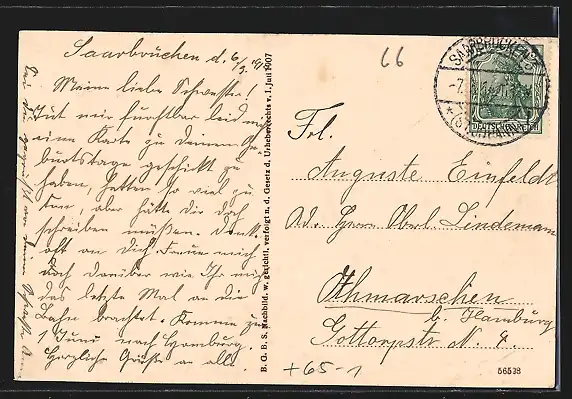 Saarbrücken d. 6/3.
Meine liebe Schwester!
Tut mir furchtbar leid nicht
eine Karte zu deinem Ge-
burtstage geschickt zu
haben, hatten so viel zu
tun, aber hätte dir doch
schreiben müssen. Denke
oft an dich. Freue mich
doch darüber wie Ihr mich
das letzte Mal an die
Bahn brachtet. Komme zu
1 Juni nach Hamburg.
Herzliche Grüße an alle.
Sei du gegrüßt von
B. G. B. S. Nachbild. w. gerichtl. verfolgt n. d. Gesetz d. Urheberrechts v. 1. Juli 1907
66
SAARBRÜCKEN
-7.
DEUTSCHES REICH
Frl.
Auguste Einfeldt
Ad. Herrn Oberl. Lindemann
Othmarschen
b. Hamburg
Gottorpstr N. 8.
+65-1
56538